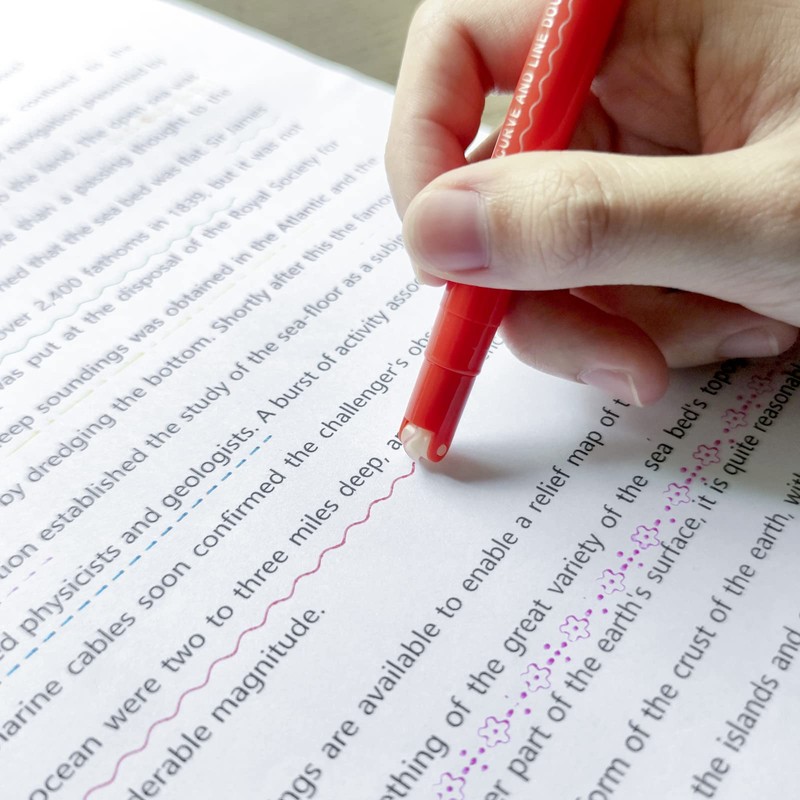 CURVE AND LINE DOU
confined to the
navigation presented by
to the
than a passing thought to the
ned that the sea bed was flat. Sir James
over 2,400 fathoms in 1839, but it was not
was put at the disposal of the Royal Society for
eep soundings was obtained in the Atlantic and the
by dredging the bottom. Shortly after this the famous
tion established the study of the sea-floor as a subje
ed physicists and geologists. A burst of activity assoc
marine cables soon confirmed the challenger's obs
ocean were two to three miles deep, a
derable magnitude.
ngs are available to enable a relief map of t
ething of the great variety of the sea bed's topo
er part of the earth's surface, it is quite reasonabl
form of the crust of the earth, with
the islands and